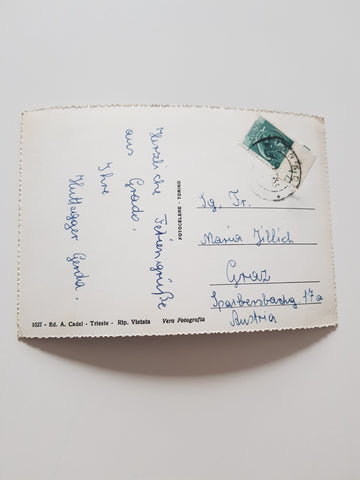 Herzliche Feriengrüße
aus Grado.
Ihre
Huttegger Gerda.
FOTOCELERE - TORINO
Sg. Fr.
Maria Jillich
Graz
Sparbersbachg. 17a
Austria
1027 - Ed. A. Cadel - Trieste - Rip. Vietata
Vera Fotografia